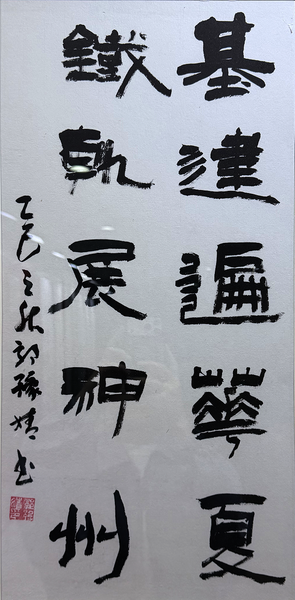 基建遍華夏
鐵軌展神州
乙巳之秋郭豫婧书